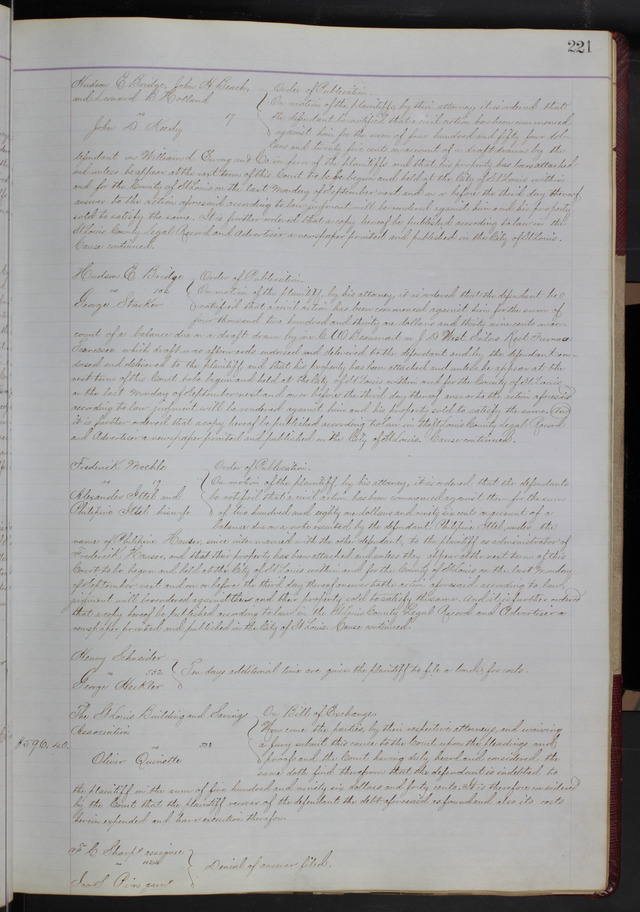 221
Hudson E Bridge, John H Beach,
and Leonard B Holland
vs 17
John D Keedy
Order of Publication
On motion of the plaintiffs, by their attorney, it is ordered that
the defendant be notified that a civil action has been commenced
against him for the sum of four hundred and fifty four dol-
lars and twenty five cents on account of a draft drawn by the
defendant on William L Ewing and Co in favor of the plaintiffs and that his property has been attached
and unless he appear at the next term of this Court to be begun and held at the City of St Louis within
and for the County of St Louis on the last Monday of September next and on or before the third day thereof
answer to the action aforesaid according to law judgment will be rendered against him and his property
sold to satisfy the same. It is further ordered that a copy hereof be published according to law in the
St Louis County Legal Record and Advertiser a newspaper printed and published in the City of St Louis.
Cause continued.
Hudson E Bridge
vs
George Starker
Order of Publication
On motion of the plaintiff, by his attorney, it is ordered that the defendant be
notified that a civil action has been commenced against him for the sum of
four thousand two hundred and thirty six dollars and thirty nine cents on ac-
count of a balance due on a draft drawn by
Francisco which draft was afterwards endorsed and delivered to the defendant and by the defendant en-
dorsed and delivered to the plaintiff and that his property has been attached and unless he appear at the
next term of this Court to be begun and held at the City of St Louis within and for the County of St Louis
on the last Monday of September next and on or before the third day thereof answer to the action aforesaid
according to law judgment will be rendered against him and his property sold to satisfy the same And
it is further ordered that a copy hereof be published according to law in the St Louis County Legal Record
and Advertiser a newspaper printed and published in the City of St Louis. Cause continued.
Frederick
vs
Alexander Ittel and
Philipine Ittel his wife
Order of Publication.
On motion of the plaintiff by his attorney, it is ordered that the defendants
be notified that a civil action has been commenced against them for the sum
of two hundred and eighty six dollars and ninety six cents on account of a
balance due on a note executed by the defendant, Philipine Ittel under the
name of Philipine Hauser, since intermarried with the other defendant, to the plaintiff as administrator of
Frederick Hauser, and that their property has been attached and unless they appear at the next term of this
Court to be begun and held at the City of St Louis within and for the County of St Louis on the last Monday
of September next and on or before the third day thereof answer to the action aforesaid according to law
judgment will be rendered against them and their property sold to satisfy the same. And it is further ordered
that a copy hereof be published according to law in the St Louis County Legal Record and Advertiser a
newspaper printed and published in the City of St Louis. Cause continued.
Henry Schneider
vs 552
George Heckler
Ten days additional time are given the plaintiff to file a bond for costs.
The St Louis Building and Savings
Association
vs
Oliver Quinette
On Bill of Exchange.
$596.40.
Now come the parties, by their respective attorneys, and waiving
a jury submit this cause to the Court upon the pleadings and
proofs and the Court having duly heard and considered the
same doth find therefrom that the defendant is indebted to
the plaintiff in the sum of five hundred and ninety six dollars and forty cents. It is therefore considered
by the Court that the plaintiff recover of the defendant the debt aforesaid so found and also its costs
herein expended and have execution therefor
F C Sharp assignee
vs
Denial of answer filed.